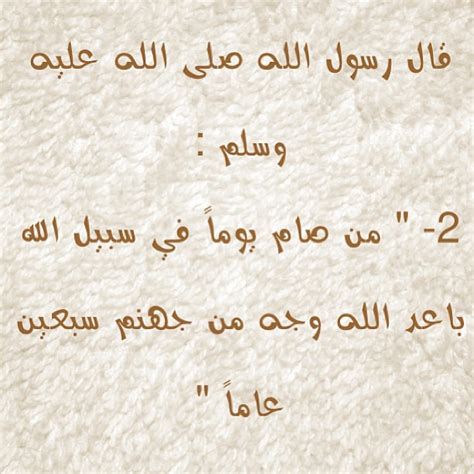 قال رسول الله صلى الله عليه
وسلم :
2- " من صام يوماً في سبيل الله
باعد الله وجه من جهنم سبعين
عاماً "